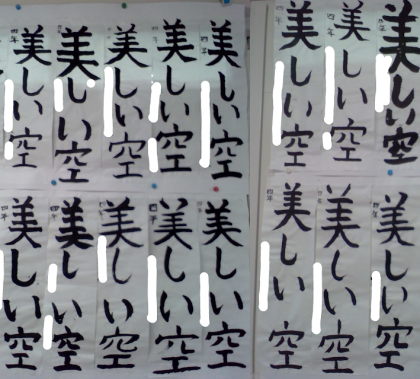 美しい空
四年
美しい空
四年
美しい空
四年
美しい空
四年
美しい空
美しい空
美しい空
四年
美しい空
四年
美しい空
四年
美しい空
四年
美しい空
四年
美しい空
美しい空
四年
美しい空
四年
美しい空
四年
美しい空
四年